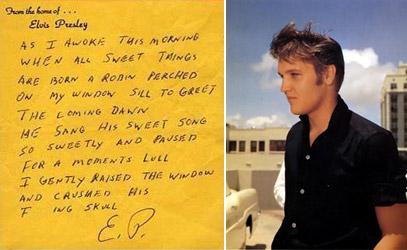 From the home of ...
Elvis Presley
AS I AWOKE THIS MORNING
WHEN ALL SWEET THINGS
ARE BORN A ROBIN PERCHED
ON MY WINDOW SILL TO GREET
THE COMING DAWN
HE SANG HIS SWEET SONG
SO SWEETLY AND PAUSED
FOR A MOMENTS LULL
I GENTLY RAISED THE WINDOW
AND CRUSHED HIS
F ING SKULL
E.P.